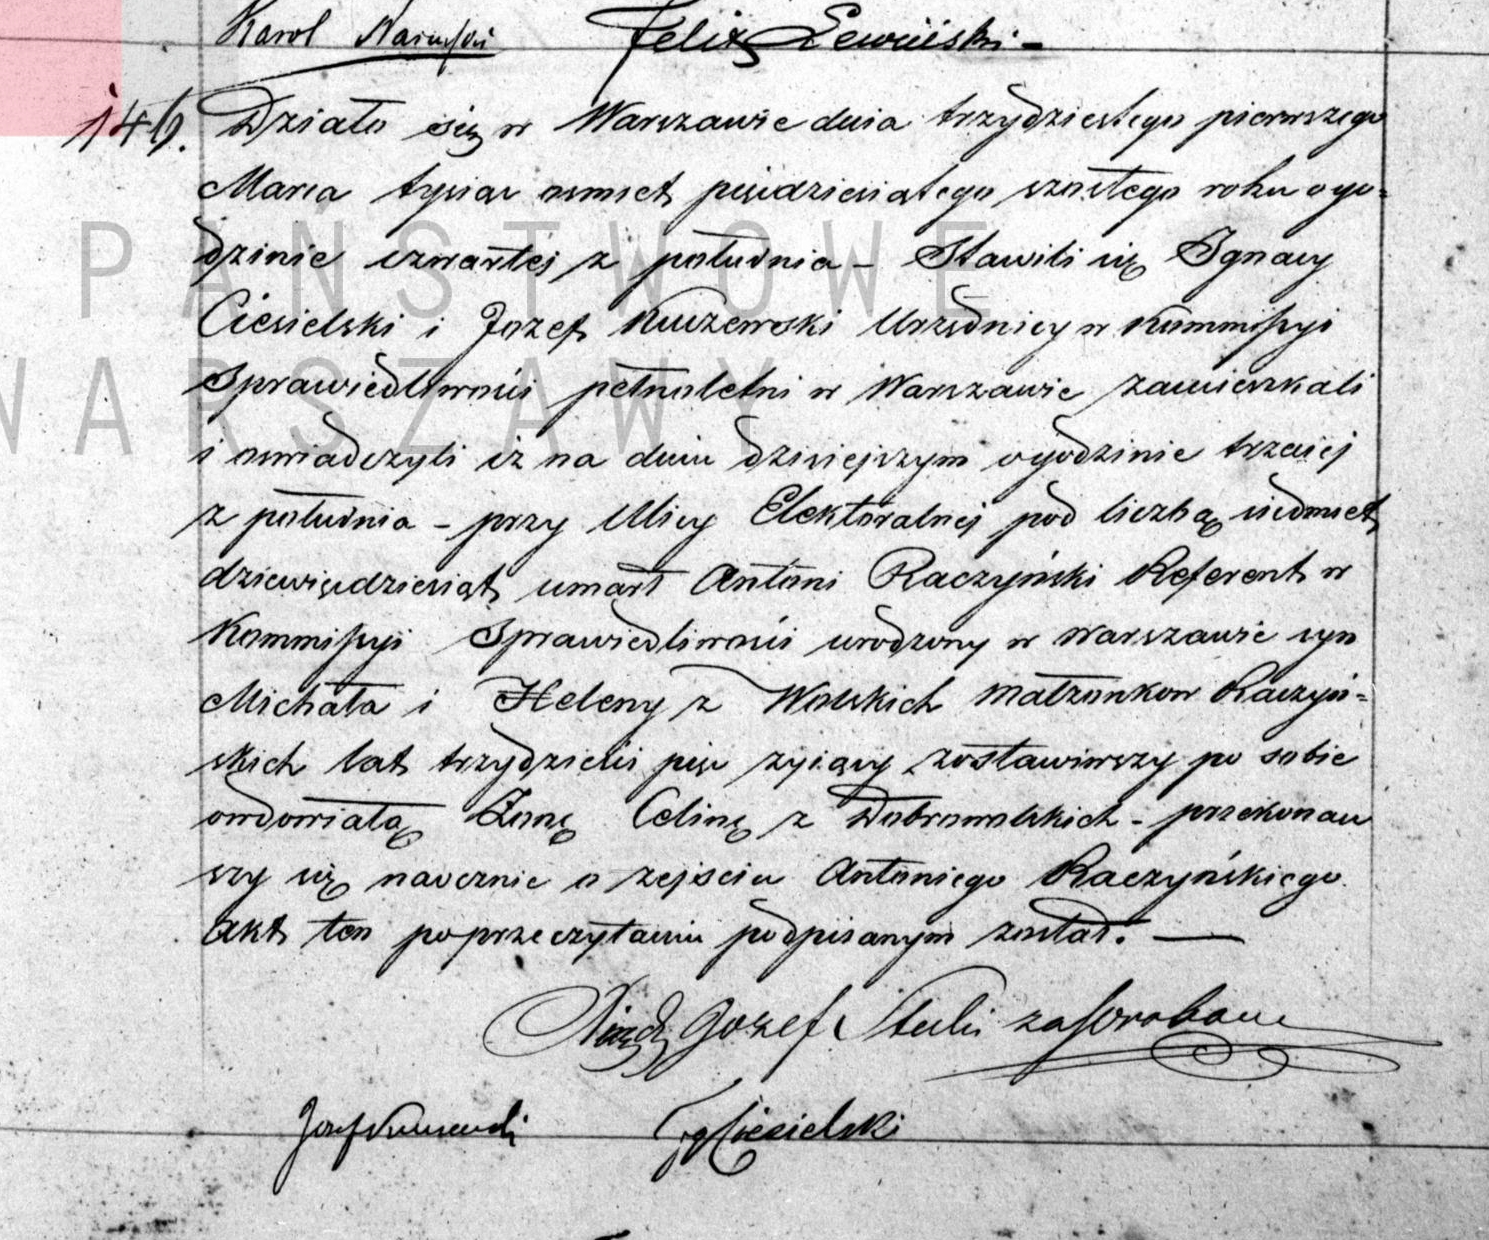 Karol Felix Lewiński
146. Działo się w Warszawie dnia trzydziestego pierwszego
Marca tysiąc osmset pięćdziesiątego szóstego roku o go-
dzinie czwartej z południa – Stawili się Ignacy
PAŃSTWOWE
Ciesielski i Jozef Kuczewski Urzędnicy w Kommissyi
Sprawiedliwości pełnoletni w Warszawie zamieszkali
WARSZAWY
i oswiadczyli iż na dniu dzisiejszym o godzinie trzeciej
z południa – przy Ulicy Elektoralnej pod liczbą siedmset
dziewięćdziesiąt umarł Antoni Raczyński Referent w
Kommissyi Sprawiedliwości urodzony w Warszawie syn
Michała i Heleny z Wolskich Małżonkow Raczyń-
skich lat trzydzieści pięć żyiący zostawiwszy po sobie
owdowiałą Żonę Celinę z Dobrowolskich – przekonaw
szy się naocznie o zejściu Antoniego Raczyńskiego
akt ten po przeczytaniu podpisanym został. —
Xiądz Jozef
Ig Ciesielski